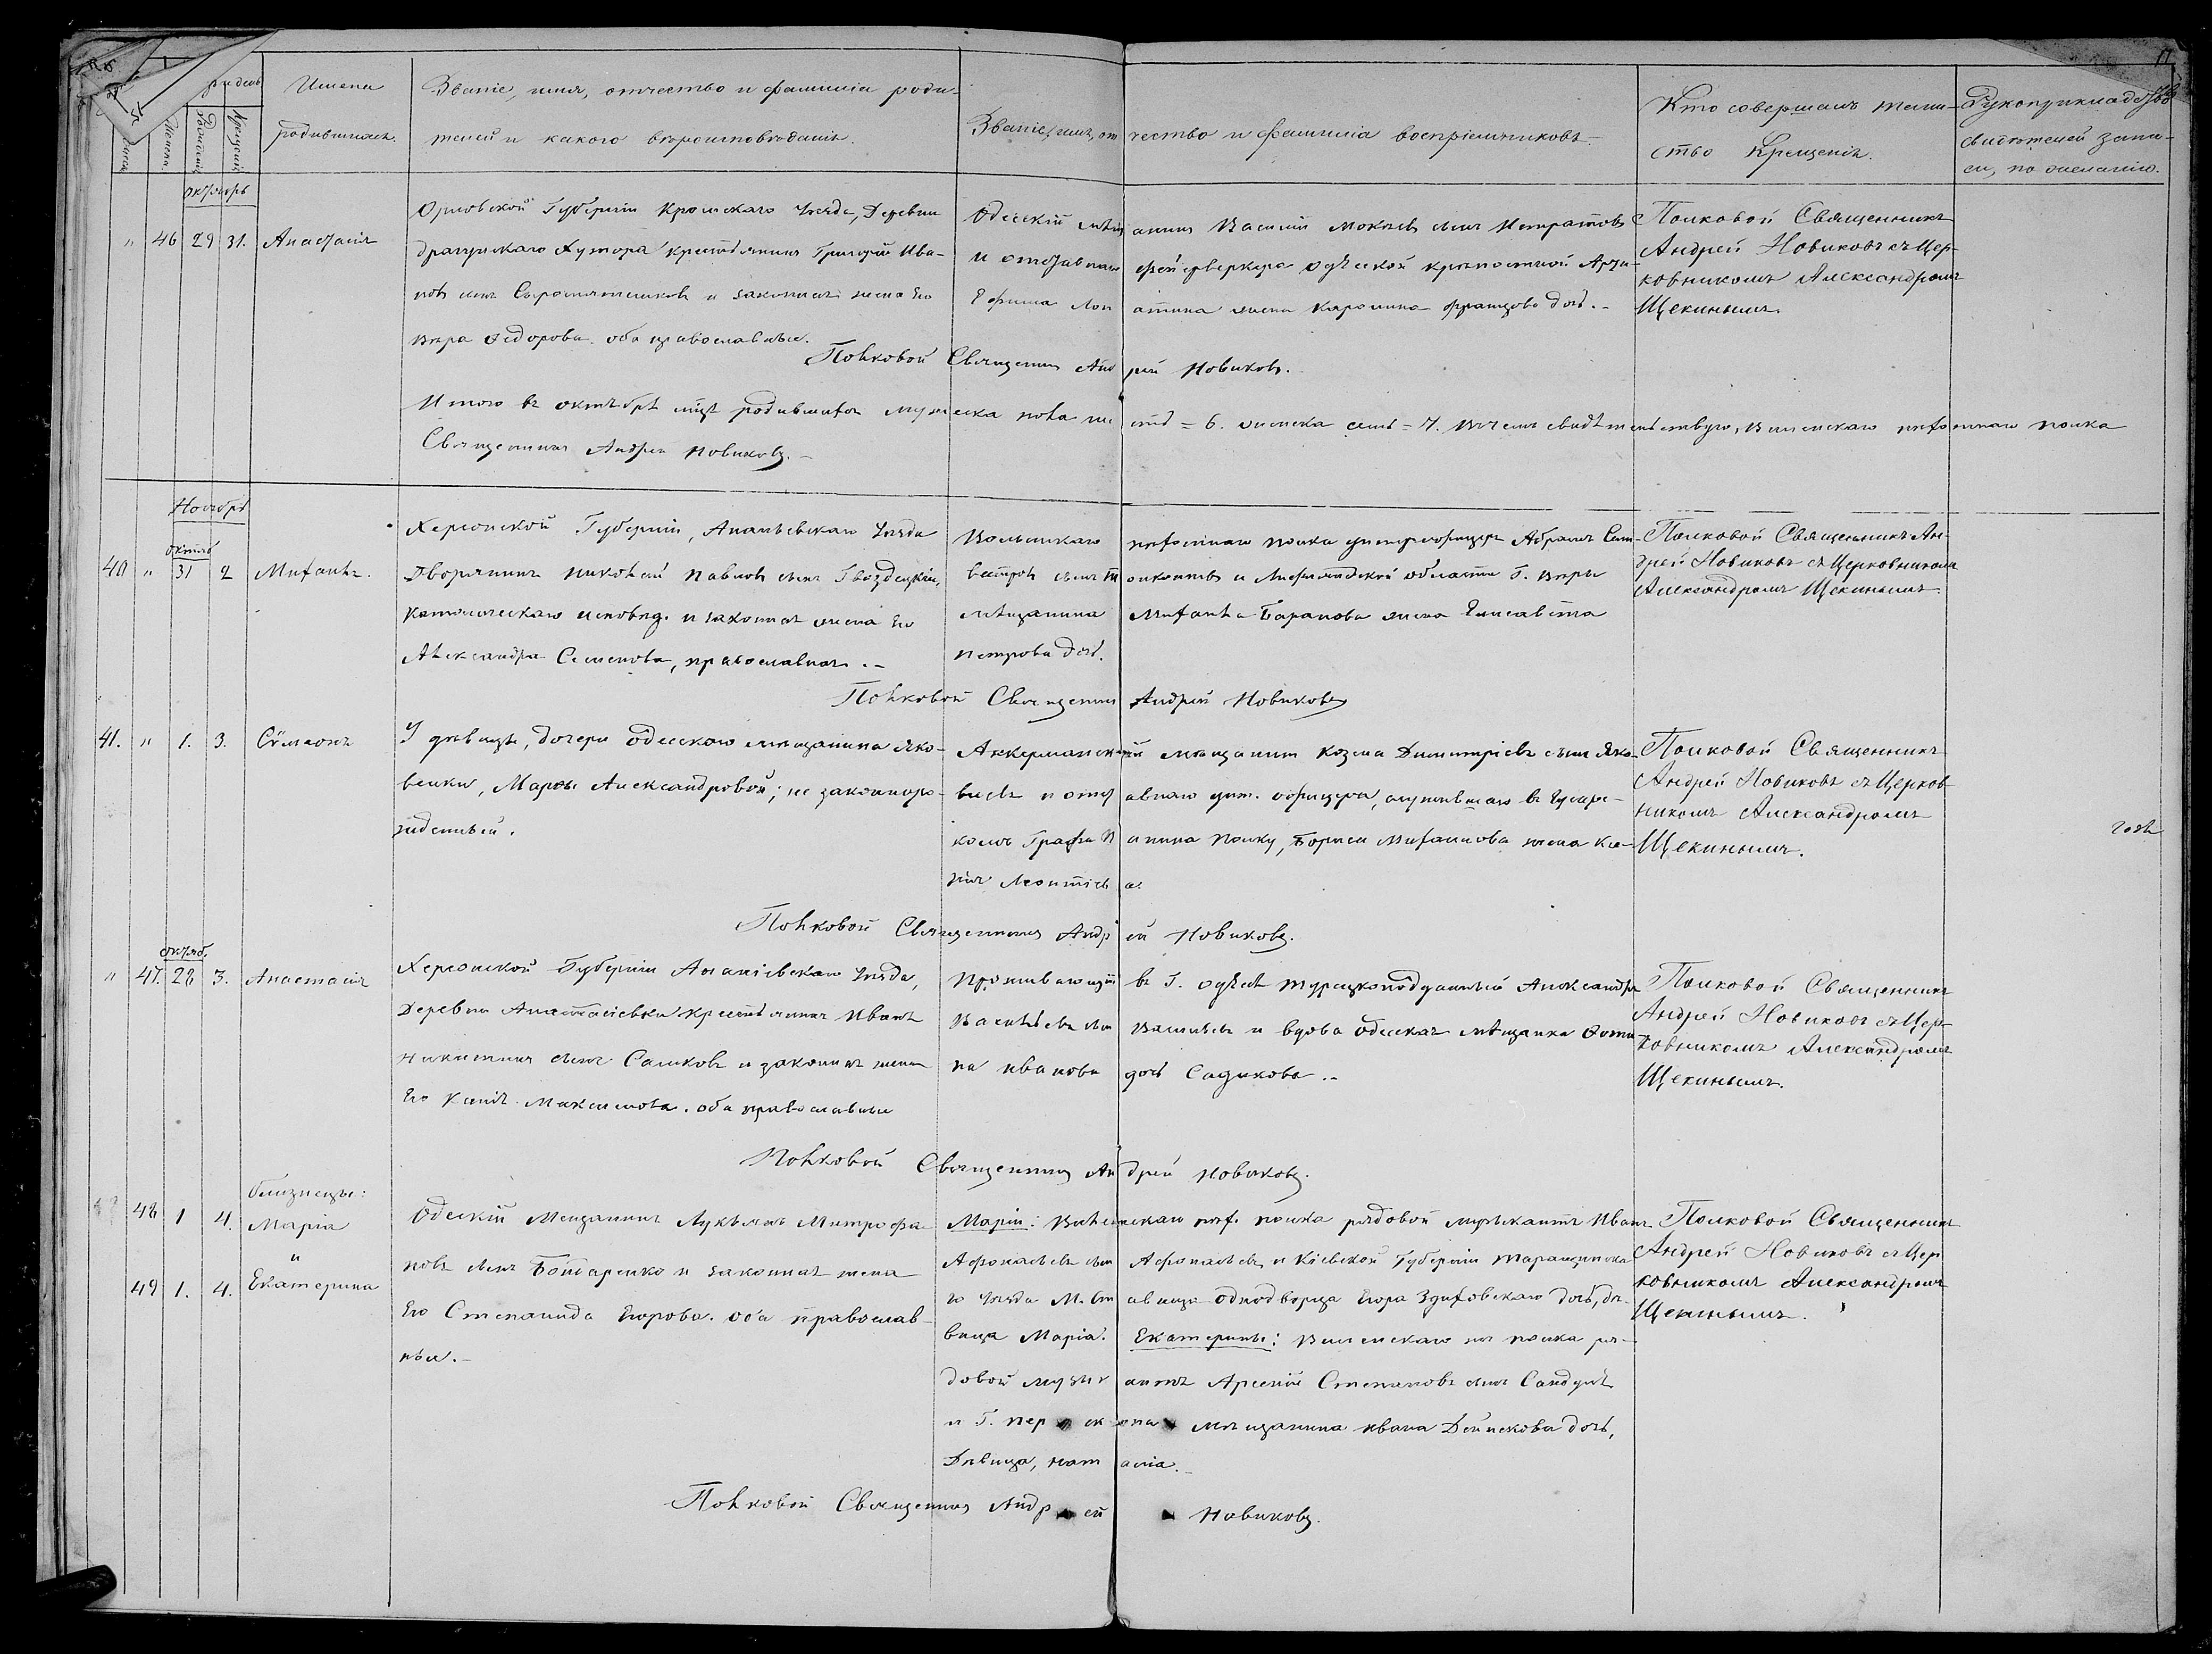 Имена
родившихся.
Званіе, имя, отчество и фамилія роди-
телей и какого вѣроисповѣданія.
Званіе, имя, отчество и фамилія воспріемниковъ.
Кто совершалъ таин-
ство Крещенія.
Рукоприкладство
свидѣтелей запи-
си, по желанію.
17
октябрь
" 46 29 31. Анастасія
Орловской Губерніи Кромскаго уѣзда, Деревни
хутора крестьянинъ Григорій Ива-
новъ сынъ Сыромятниковъ и законная жена его
Вѣра Ѳедорова. оба православные.
Одесскій мѣщанинъ Василій сынъ
и фейерверкера Одесской крѣпостной Арти
Ефима жена Каролина Францова дочь.
Полковой Священникъ
Андрей Новиковъ съ Цер-
ковникомъ Александромъ
Щекинымъ.
Полковой Священникъ Андрей Новиковъ.
Итого въ октябрѣ м̃цѣ родившихся мужеска пола шесть = 6. женска семь = 7. въ чемъ свидѣтельствую, Виленскаго пѣхотнаго полка
Священникъ Андрей Новиковъ.
Ноябрь
октяб
40 " 31 2 Михаилъ.
Херсонской Губерніи, Ананьевскаго уѣзда
Дворянинъ Николай Павловъ сынъ Гвоздецкій,
католическаго исповѣд. и законная жена его
Александра Семенова, православная.
Волынскаго пѣхотнаго полка унтеръ-офицеръ Абрамъ Сил-
вестровъ сынъ и области Г.
мѣщанина Михаила Баранова жена Елисавета
Петрова дочь.
Полковой Священникъ Ан-
дрей Новиковъ съ Церковникомъ
Александромъ Щекинымъ.
Полковой Священникъ Андрей Новиковъ
41. " 1. 3. Сѵмеонъ
У дѣвицы, дочери одесскаго мѣщанина Яко-
Марѳы Александровой; не законноро-
жденный.
Аккерманскій мѣщанинъ Козма Димитріевъ сынъ Яко-
влевъ и отставнаго унт. офицера, служившаго въ Гусарс-
комъ Графа полку, Бориса Михаилова жена Ксе-
нія Леонтіева.
Полковой Священникъ
Андрей Новиковъ съ Церков-
никомъ Александромъ
Щекинымъ.
Полковой Священникъ Андрей Новиковъ.
октяб.
" 47. 28 3. Анастасія
Херсонской Губерніи Ананіевскаго уѣзда,
Деревни Анастасіевки крестьянинъ Иванъ
Никитинъ сынъ Саликовъ и законная жена
его Ксенія Максимова. оба православные
Проживающій въ Г. Одессѣ турецкоподданный Александръ
Васильевъ сынъ и вдова одесская мѣщанка Ѳоти-
на Иванова дочь Садикова.
Полковой Священникъ
Андрей Новиковъ съ Цер-
ковникомъ Александромъ
Щекинымъ.
Полковой Священникъ Андрей Новиковъ.
близнецы:
48 1 4. Марія
и
49 1. 4. Екатерина
Одесскій Мещанинъ Лукьянъ Митрофа-
новъ сынъ Бондаренко и законная жена
его Степанида Егорова. оба православ-
ные.
Маріи: Виленскаго пѣх. полка рядовой музыкантъ Иванъ
Афонасьевъ сынъ Афонасьевъ и Кіевской Губерніи Таращинска-
го уѣзда однодворца Егора дочь, дѣ-
вица Марія. Екатерины: Виленскаго полка ря-
довой музыкантъ Арсеній Степановъ сынъ
и Г. мѣщанина Ивана дочь,
Дѣвица, Наталія.
Полковой Священникъ
Андрей Новиковъ съ Цер
ковникомъ Александромъ
Щекинымъ.
Полковой Священникъ Андрей Новиковъ.